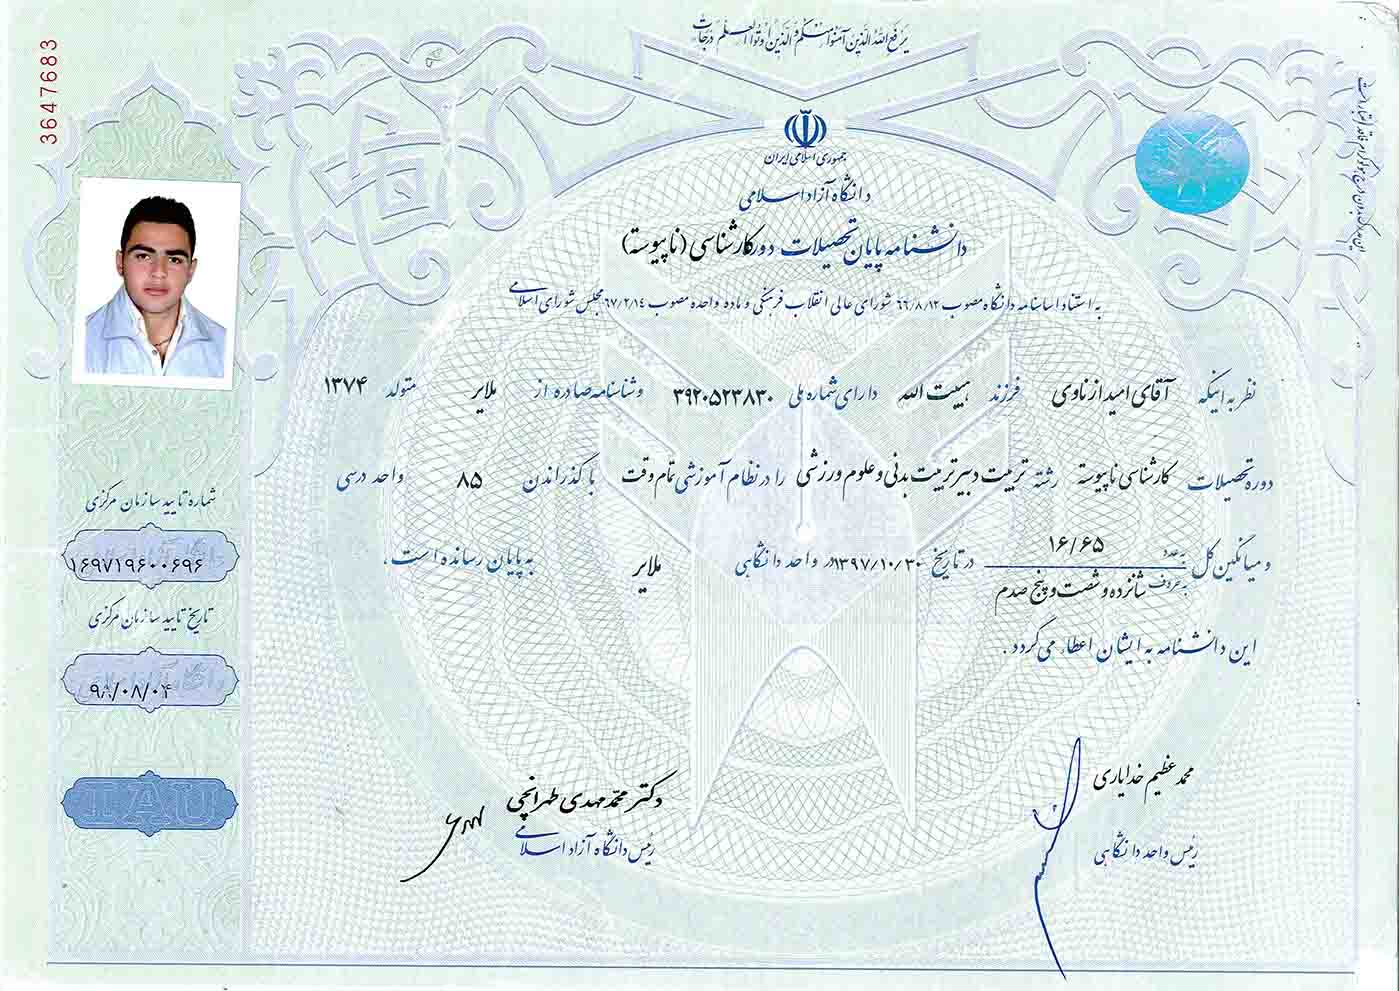 یرفع الله الذین آمنوا منکم و الذین اوتوا العلم درجات
3647683
جمهوری اسلامی ایران
دانشگاه آزاد اسلامی
دانشنامه پایان تحصیلات دوره کارشناسی (ناپیوسته)
به استناد اساسنامه دانشگاه مصوب ۶۶/۸/۱۲ شورای عالی انقلاب فرهنگی و ماده واحده مصوب ۶۷/۲/۱۴ مجلس شورای اسلامی
نظر به اینکه آقای امید ازناوی فرزند هیبت الله دارای شماره ملی ۳۹۲۰۵۲۳۸۳۰ و شناسنامه صادره از ملایر متولد ۱۳۷۴
دوره تحصیلات کارشناسی ناپیوسته رشته تربیت دبیر تربیت بدنی و علوم ورزشی را در نظام آموزشی تمام وقت با گذراندن ۸۵ واحد درسی
و میانگین کل به عدد ۱۶/۶۵ به حروف شانزده و شصت و پنج صدم در تاریخ ۱۳۹۷/۱۰/۳۰ در واحد دانشگاهی ملایر به پایان رسانده است ،
این دانشنامه به ایشان اعطاء می گردد .
محمد عظیم خدایاری
رئیس واحد دانشگاهی
دکتر محمد مهدی طهرانچی
رئیس دانشگاه آزاد اسلامی
شماره تایید سازمان مرکزی
۱۶۹۷۱۹۶۰۰۶۹۶
تاریخ تایید سازمان مرکزی
۹۸/۰۸/۰۴
IAU
این مدرک بدون درج هولوگرام فاقد اعتبار است